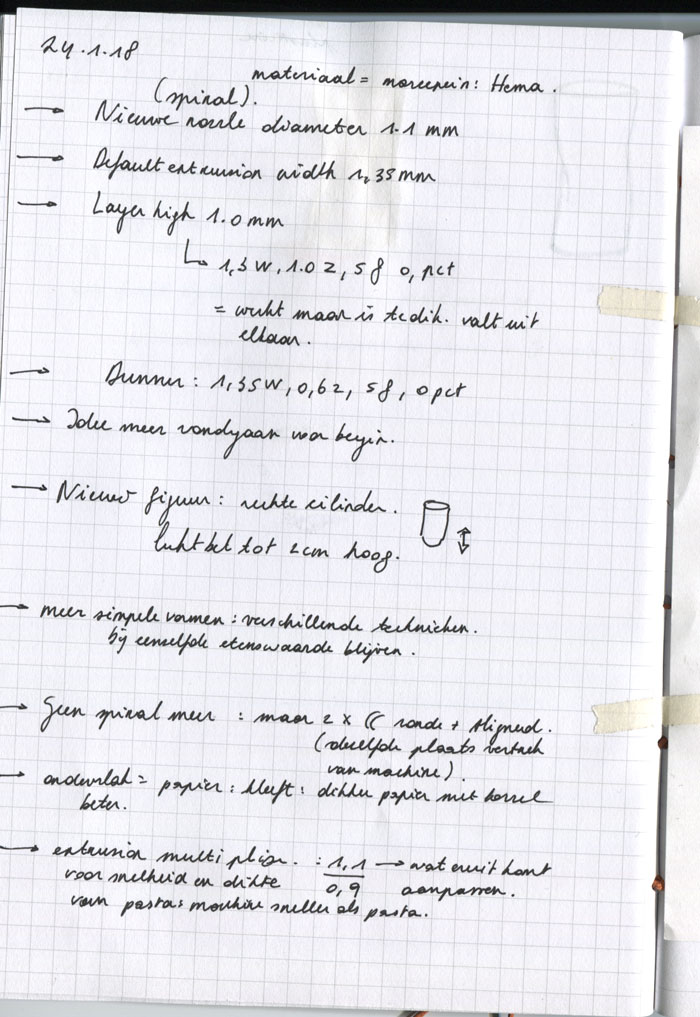 24.1.18
materiaal = marsepein: Hema.
(spiral).
→ Nieuwe nozzle diameter 1.1 mm
→ Default extrusion width 1,35 mm
→ Layer high 1.0 mm
↳ 1,3 W, 1.0 z, 5 f 0, pct
= werkt maar is te dik. valt uit
elkaar.
→ Dunner: 1,35 W, 0,6 z, 5 f, 0 pct
→ Idee meer rondgaan voor begin.
→ Nieuw figuur: rechte cilinder.
luchtbel tot 2 cm hoog.
→ meer simpele vormen: verschillende technieken.
bij eenzelfde etenswaarde blijven.
→ Geen spiral meer: maar 2 x ronde + aligned.
(dezelfde plaats vertrek
van machine).
→ ondervlak = papier: kleeft: dikker papier met korrel
beter.
→ extrusion multiplier.: 1,1 → wat eruit komt
voor snelheid en dikte 0,9 aanpassen.
van pasta: machine sneller als pasta.